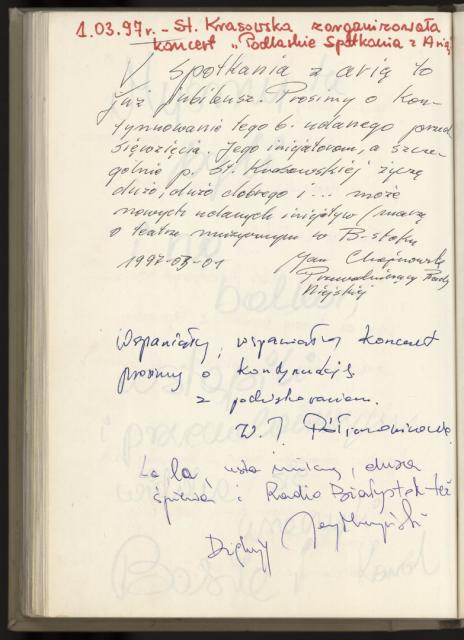 1.03.97r. - St. Krasowska zorganizowała
koncert „Podlaskie Spotkania z Arią"
V spotkania z arią to
już jubileusz. Prosimy o kon-
tynuowanie tego b. udanego przed
sięwzięcia. Jego inicjatorom, a szcze-
gólnie p. St. Krasowskiej życzę
dużo, dużo dobrego i ... może
nowych udanych inicjatyw /marzę
o teatrze muzycznym w B-stoku
1997-03-01 Jan Chojnowski
Przewodniczący Rady
Miejskiej
Wspaniały, wspaniały koncert
prosimy o kontynuację
z podziękowaniem.
W. J.
La la, usta milczą, dusza
śpiewa i Radio Białystok też
Dziękuję